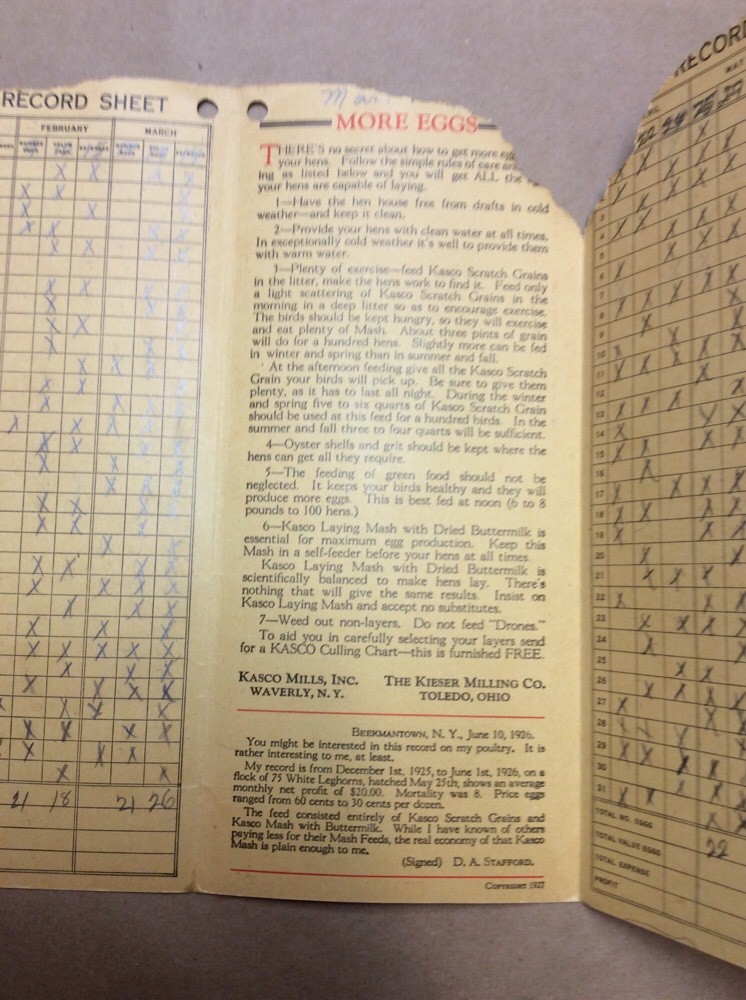 RECORD SHEET
FEBRUARY
MARCH
21 18 21 26
Mar.
MORE EGGS
THERE'S no secret about how to get more eg
your hens. Follow the simple rules of care an
ing as listed below and you will get ALL the
your hens are capable of laying.
1—Have the hen house free from drafts in cold
weather—and keep it clean.
2—Provide your hens with clean water at all times.
In exceptionally cold weather it's well to provide them
with warm water.
3—Plenty of exercise—feed Kasco Scratch Grains
in the litter, make the hens work to find it. Feed only
a light scattering of Kasco Scratch Grains in the
morning in a deep litter so as to encourage exercise.
The birds should be kept hungry, so they will exercise
and eat plenty of Mash. About three pints of grain
will do for a hundred hens. Slightly more can be fed
in winter and spring than in summer and fall.
At the afternoon feeding give all the Kasco Scratch
Grain your birds will pick up. Be sure to give them
plenty, as it has to last all night. During the winter
and spring five to six quarts of Kasco Scratch Grain
should be used at this feed for a hundred birds. In the
summer and fall three to four quarts will be sufficient.
4—Oyster shells and grit should be kept where the
hens can get all they require.
5—The feeding of green food should not be
neglected. It keeps your birds healthy and they will
produce more eggs. This is best fed at noon (6 to 8
pounds to 100 hens.)
6—Kasco Laying Mash with Dried Buttermilk is
essential for maximum egg production. Keep this
Mash in a self-feeder before your hens at all times.
Kasco Laying Mash with Dried Buttermilk is
scientifically balanced to make hens lay. There's
nothing that will give the same results. Insist on
Kasco Laying Mash and accept no substitutes.
7—Weed out non-layers. Do not feed "Drones."
To aid you in carefully selecting your layers send
for a KASCO Culling Chart—this is furnished FREE.
KASCO MILLS, INC. THE KIESER MILLING CO.
WAVERLY, N. Y. TOLEDO, OHIO
BEEKMANTOWN, N. Y., June 10, 1926.
You might be interested in this record on my poultry. It is
rather interesting to me, at least.
My record is from December 1st, 1925, to June 1st, 1926, on a
flock of 75 White Leghorns, hatched May 25th, shows an average
monthly net profit of $20.00. Mortality was 8. Price eggs
ranged from 60 cents to 30 cents per dozen.
The feed consisted entirely of Kasco Scratch Grains and
Kasco Mash with Buttermilk. While I have known of others
paying less for their Mash Feeds, the real economy of that Kasco
Mash is plain enough to me.
(Signed) D. A. STAFFORD.
COPYRIGHT 1927
RECOR
3
4
5
6
8
9
10
11
12
13
14
15
16
17
18
19
20
21
22
23
24
25
26
27
28
29
30
31
TOTAL NO. EGGS
TOTAL VALUE EGGS 22
TOTAL EXPENSE
PROFIT